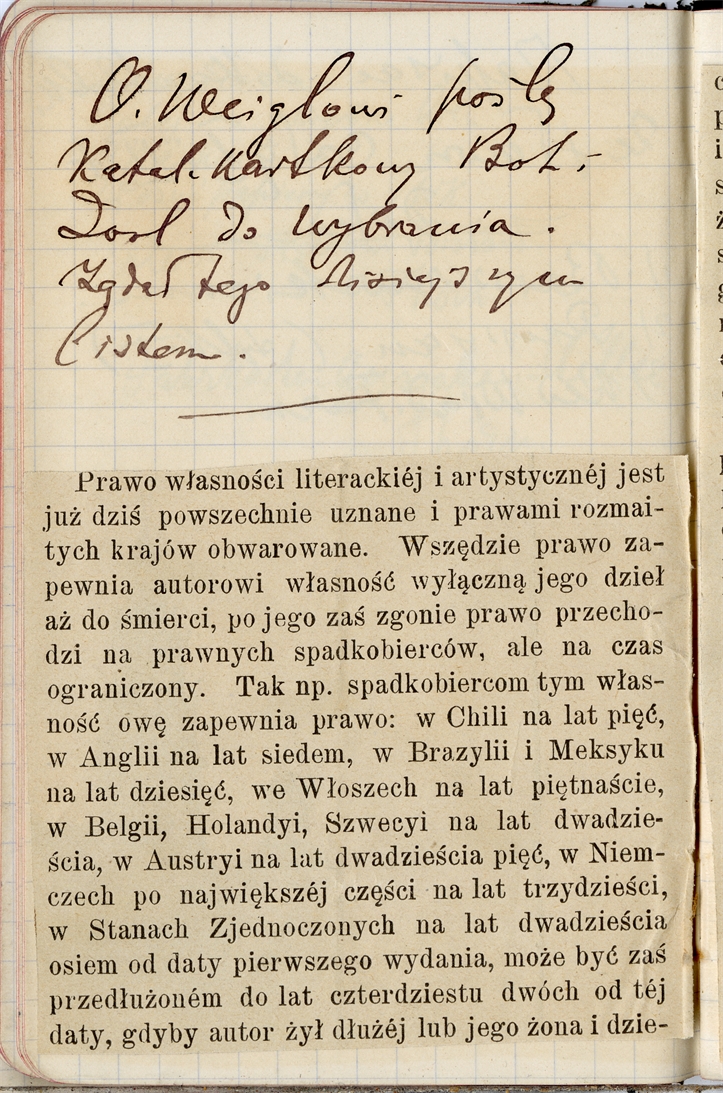 O. Weiglowi poślę
Katal. Kartkowy Bot. i
Zool do wybrania.
Zażądał tego dzisiejszym
listem.
Prawo własności literackiéj i artystycznéj jest
już dziś powszechnie uznane i prawami rozmai-
tych krajów obwarowane. Wszędzie prawo za-
pewnia autorowi własność wyłączną jego dzieł
aż do śmierci, po jego zaś zgonie prawo przecho-
dzi na prawnych spadkobierców, ale na czas
ograniczony. Tak np. spadkobiercom tym włas-
ność owę zapewnia prawo: w Chili na lat pięć,
w Anglii na lat siedem, w Brazylii i Meksyku
na lat dziesięć, we Włoszech na lat piętnaście,
w Belgii, Holandyi, Szwecyi na lat dwadzie-
ścia, w Austryi na lat dwadzieścia pięć, w Niem-
czech po największéj części na lat trzydzieści,
w Stanach Zjednoczonych na lat dwadzieścia
osiem od daty pierwszego wydania, może być zaś
przedłużoném do lat czterdziestu dwóch od téj
daty, gdyby autor żył dłużéj lub jego żona i dzie-